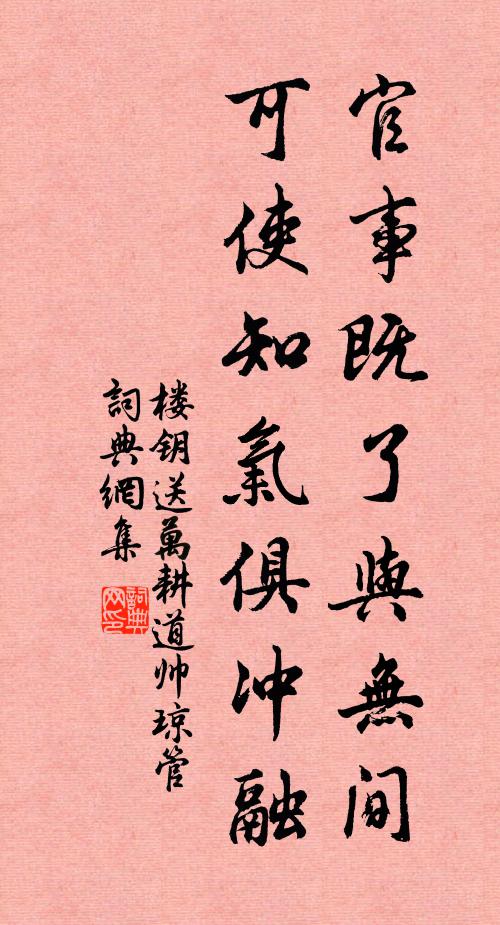 官事既了與無間
可使知氣俱沖融
楼钥送萬耕道帅琼管
詞典網集
詞典
网印